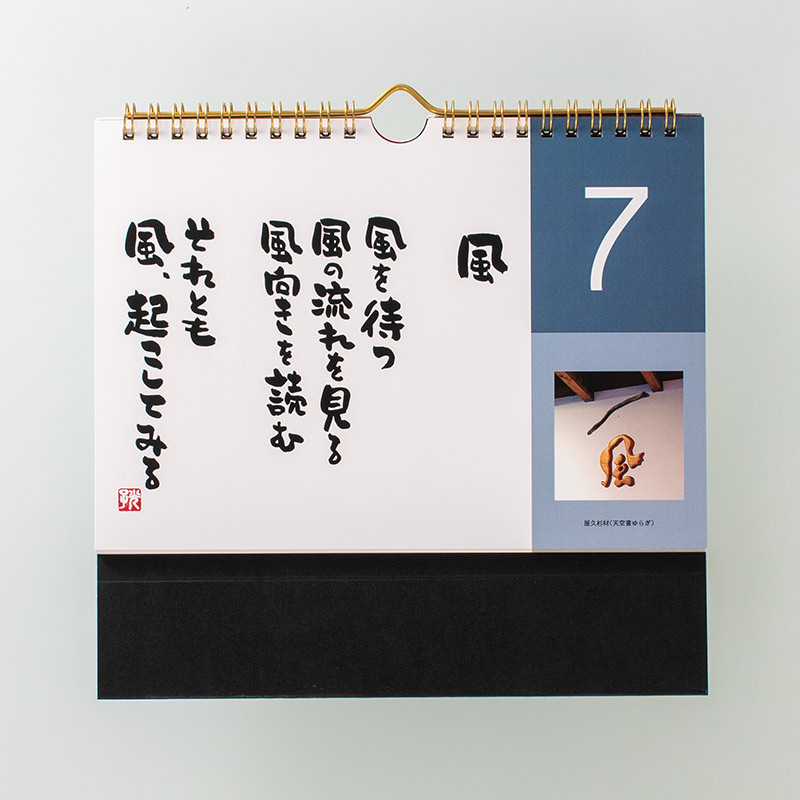 風
風を待つ
風の流れを見る
風向きを読む
それとも
風、起こしてみる
7
風
屋久杉材(天空書ゆらぎ)